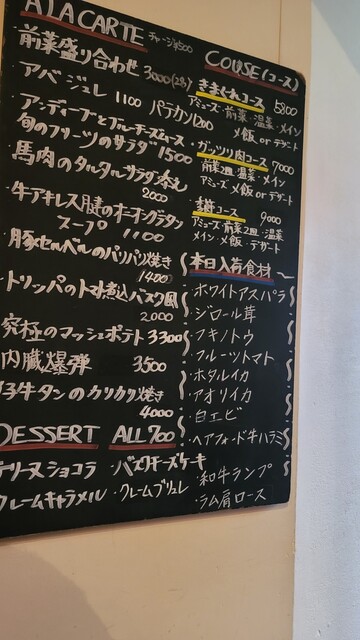 A LA CARTE チャージ¥500
前菜盛り合わせ 3000(2名)
アベジュレ 1100 パテカン1200
アンディーブとブルーチーズムース
旬のフリーツのサラダ 1500
馬肉のタルタルサラダ添え
2000
牛アキレス腱のオニオングラタン
スープ 1100
豚セルベルのパリパリ焼き
1400
トリッパのトマト煮込バスク風
2000
究極のマッシュポテト 3300
内臓爆弾 3500
仔牛タンのカリカリ焼き
4000
DESSERT ALL 700
テリーヌショコラ ・バスクチーズケーキ
クレームキャラメル ・クレームブリュレ
COUSE(コース)
きまぐれコース 5800
アミューズ・前菜・温菜・メイン
〆飯 or デザート
ガッツリ肉コース 7000
アミューズ 前菜2皿・温菜・メイン
〆飯 or デザート
コース 9000
アミューズ・前菜2皿・温菜
メイン・〆飯・デザート
本日入荷食材
・ホワイトアスパラ
・ジロール茸
・フキノトウ
・フルーツトマト
・ホタルイカ
・アオリイカ
・白エビ
・ヘアフォード牛ハラミ
・和牛ランプ
・ラム肩ロース